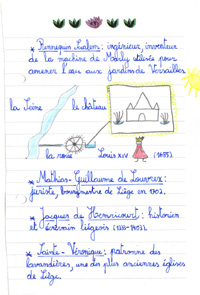 * Rennequin Sualem : ingénieur, inventeur
de la machine de Marly utilisée pour
amener l'eau aux jardins de Versailles
la Seine
le château
la roue
Louis XIV
(1685)
* Mathias-Guillaume de Louvrex :
juriste, bourgmestre de Liège en 1702.
* Jacques de Hemricourt : historien
et écrivain liégeois (1333-1403).
* Sainte-Véronique : patronne des
lavandières, une des plus anciennes églises
de Liège.